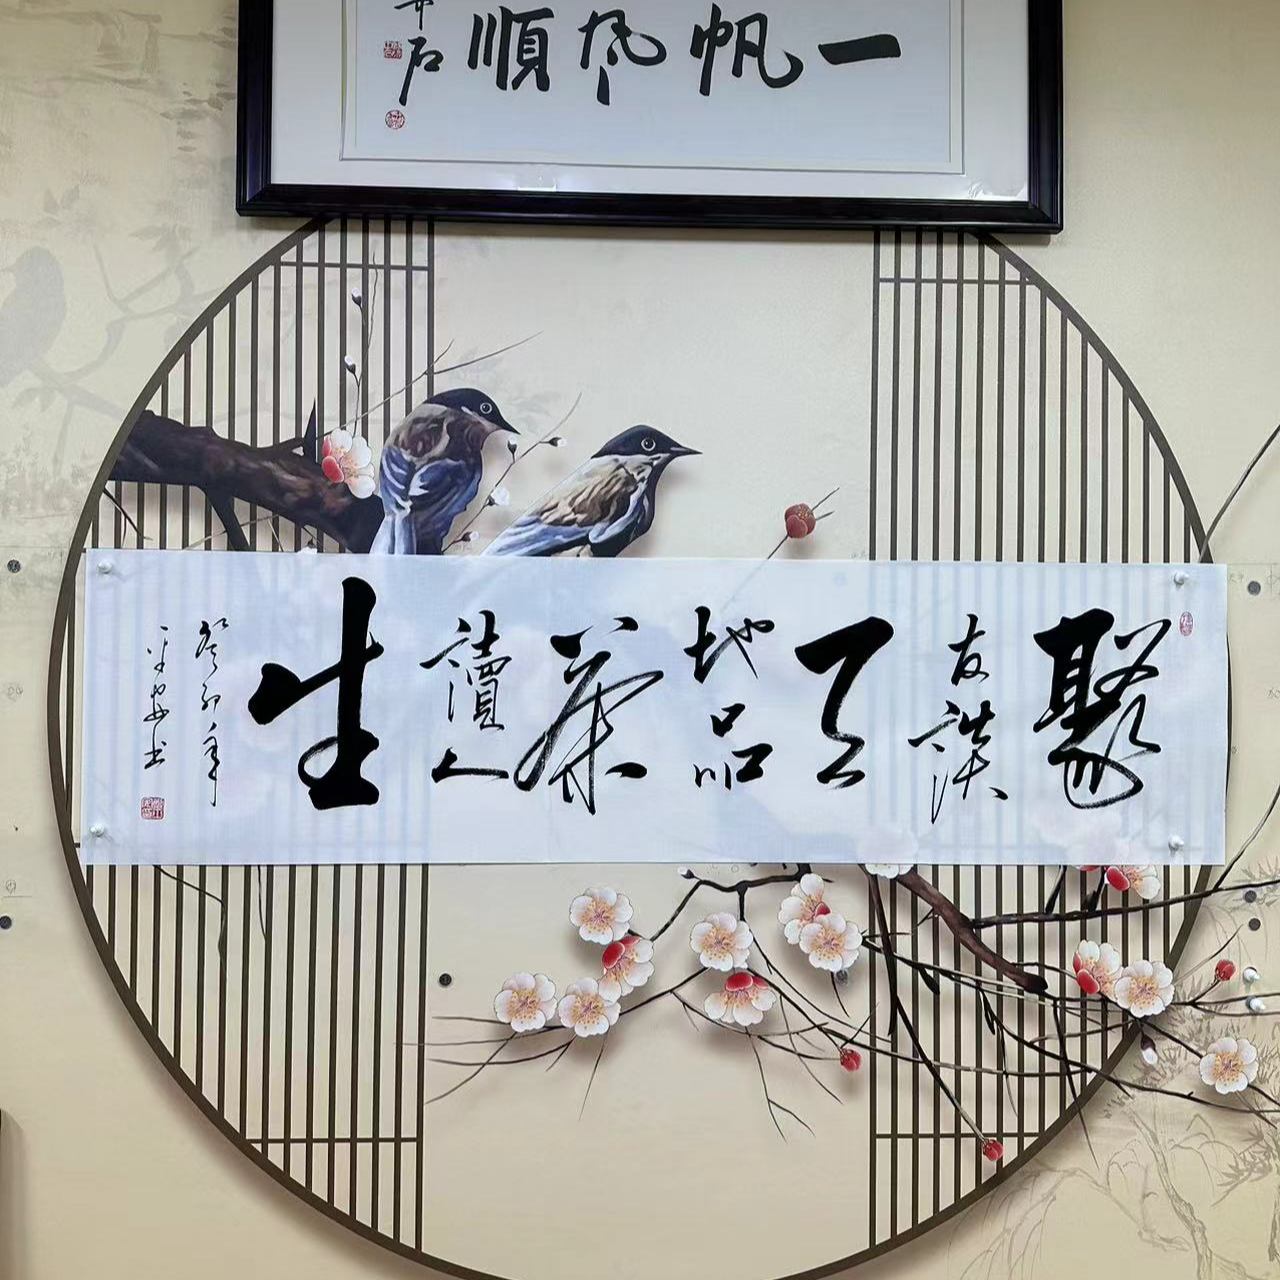 一帆風順
聚友談天地品茶讀人生
癸卯年
平安书